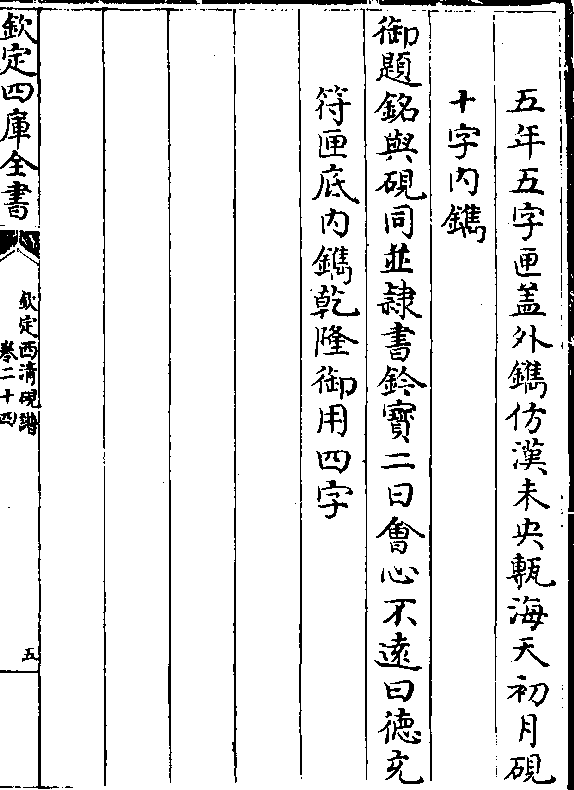 五年五字匣盖外鐫仿漢未央甎海天初月硯
十字内鐫
御題銘與硯同並隸書鈐寶二曰會心不遠曰徳充
符匣底内鐫乾隆御用四字
欽定四庫全書
欽定西清硯譜
卷二十四
五